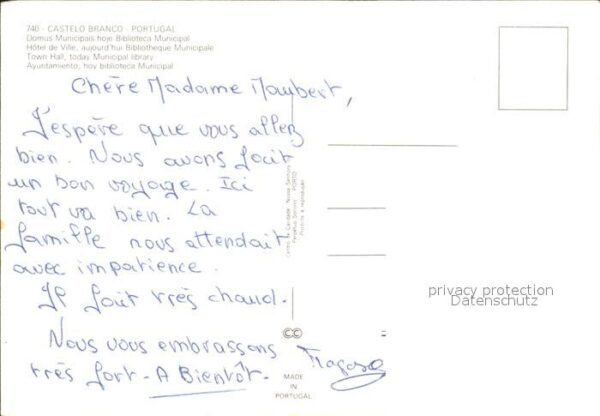 740 - CASTELO BRANCO - PORTUGAL
Domus Municipais hoje Biblioteca Municipal
Hôtel de Ville, aujourd'hui Bibliotheque Municipale
Town Hall, today Municipal library
Ayuntamiento, hoy biblioteca Municipal
Chère Madame Maubert,
J'espère que vous allez
bien. Nous avons fait
un bon voyage. Ici
tout va bien. La
famille nous attendait
avec impatience.
Il fait très chaud.
Nous vous embrassons
très fort - A Bientôt.
Centro de Caridade «Nossa Senhora
Perpétuo Socorro» PORTO
Proibida a reprodução
privacy protection
Datenschutz
CC
MADE
IN
PORTUGAL